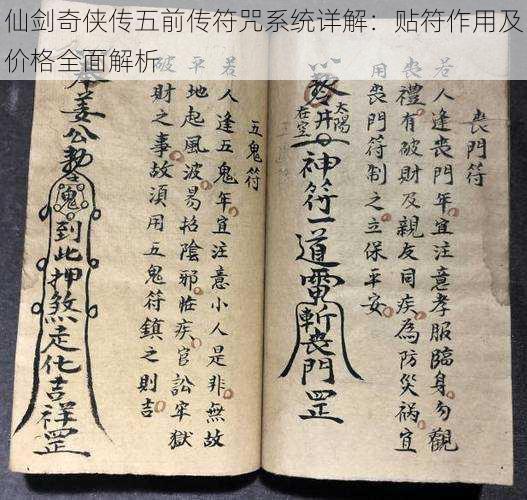 仙剑奇侠传五前传符咒系统详解：贴符作用及
价格全面解析
喪門符
若人逢喪門年宜注意孝服臨身勿觀
喪禮有破財及親友同疾為防災禍宜
用喪門符制之立保平安
太陽
在空
神符一道雷斬喪門罡
五鬼符
若人逢五鬼年宜注意小人是非無故
平地起風波易招陰邪臨疾官訟牢獄
破財之事故須用五鬼符鎮之則吉
奉姜公勅令
到此押煞走化吉祥罡